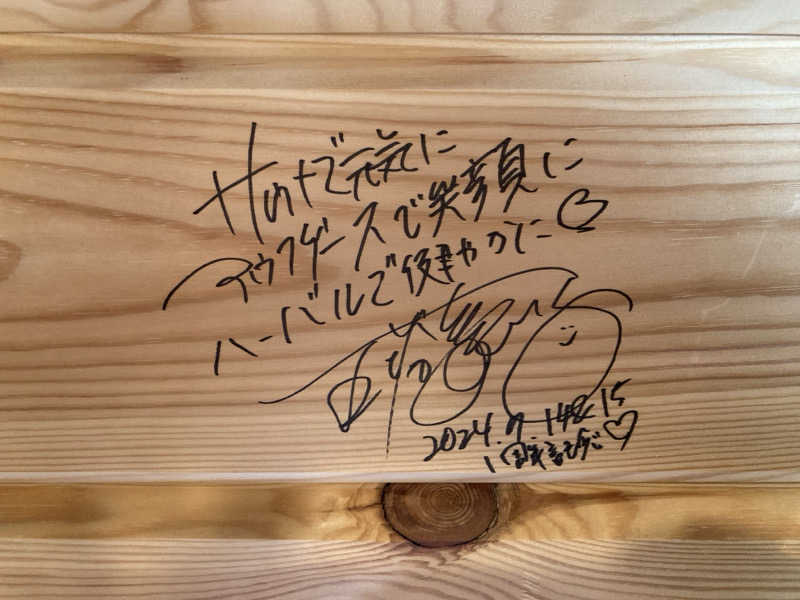 Hutで元気に
アウフギースで笑顔に
ハーバルで健やかに♡
2024.9.14&15
1周年記念♡